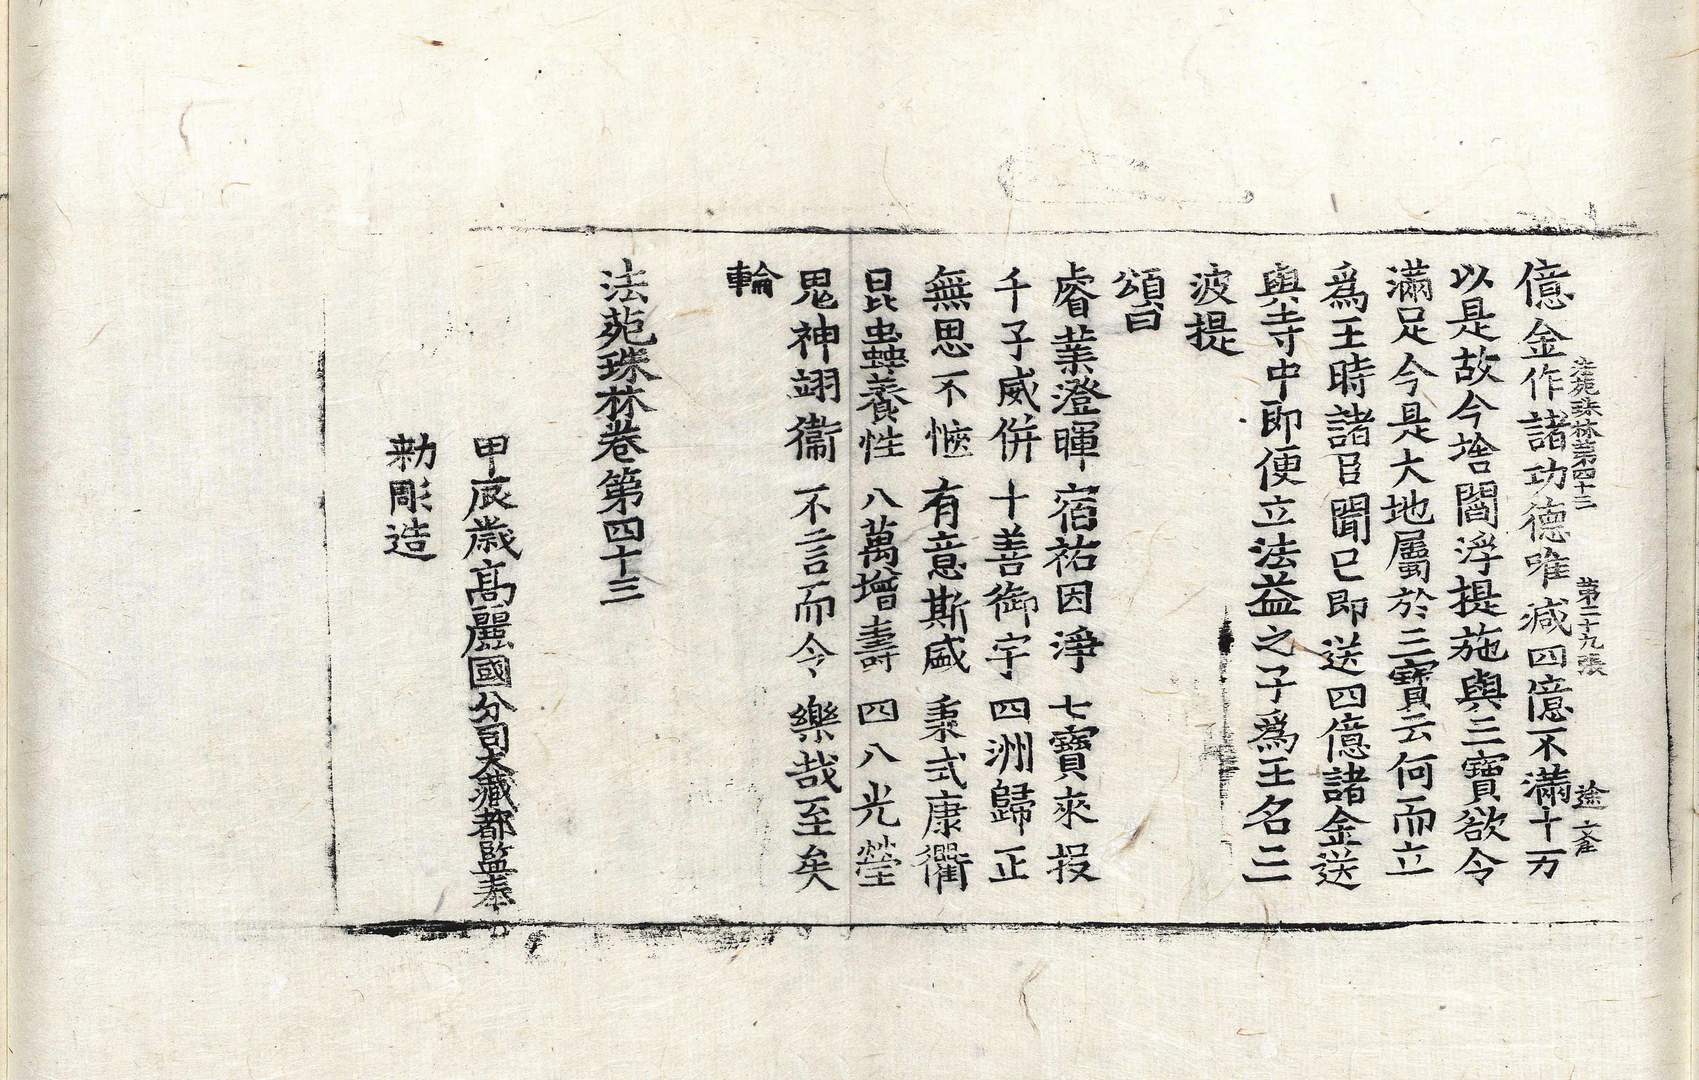 法苑珠林第四十三 第二十九張
億金作諸功德唯減四億不滿十万
以是故今捨閻浮提施與三寶欲令
滿足今是大地屬於三寶云何而立
爲王時諸臣聞已即送四億諸金送
與寺中即便立法益之子爲王名三
波提
頌曰
睿業澄暉 宿祐因淨 七寶來投
千子威併 十善御宇 四洲歸正
無思不愜 有意斯盛 秉式康衢
昆蟲養性 八萬增壽 四八光瑩
鬼神翊衛 不言而令 樂哉至矣
輪
法苑珠林卷第四十三
甲辰歲高麗國分司大藏都監奉
勑彫造